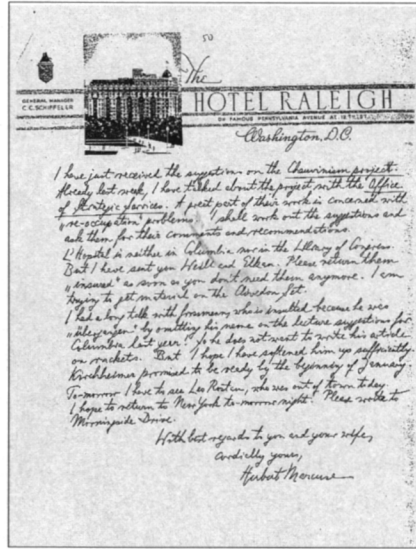 50
The
HOTEL RALEIGH
GENERAL MANAGER
C.C. SCHIFFELER
ON FAMOUS PENNSYLVANIA AVENUE AT 12TH ST.
Washington, D.C.
I have just received the suggestions on the Chauvinism project.
Already last week, I have talked about the project with the Office
of Strategic Services. A great part of their work is concerned with
„re-occupation" problems. I shall work out the suggestions and
ask them for their comments and recommendations.
L'Hopital is neither in Columbia nor in the Library of Congress.
But I have sent you and Elkan. Please return them
„insured" as soon as you don't need them anymore. I am
trying to get material on the Set.
I had a long talk with who is insulted because he was
„übergangen" by omitting his name on the lecture suggestions for
Columbia last year. So he does not want to write his article
on rackets. But I hope I have softened him up sufficiently.
Kirchheimer promised to be ready by the beginning of January.
To-morrow I have to see Leo Rosten, who was out of town today.
I hope to return to New York to-morrow night. Please write to
Morningside Drive.
With best regards to you and your wife,
cordially yours,
Herbert Marcuse